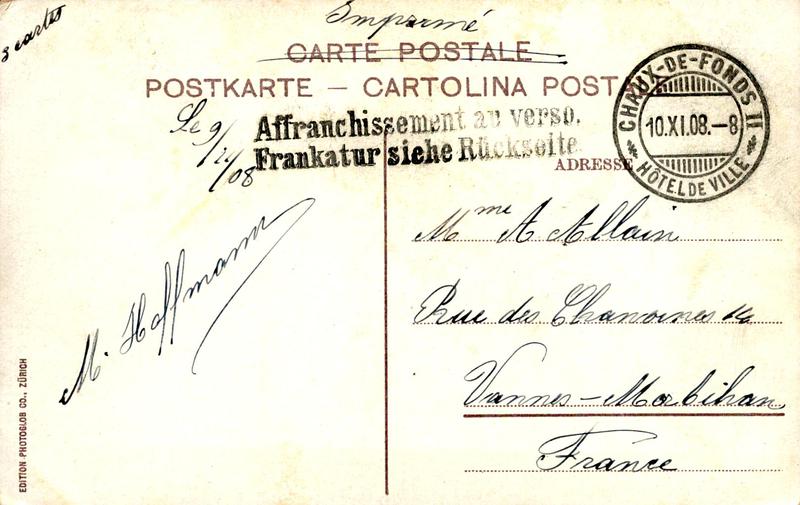 3 cartes
Imprimé
CARTE POSTALE
POSTKARTE – CARTOLINA POSTALE
CHAUX-DE-FONDS II
10.XI.08.–8
HÔTEL DE VILLE
Le 9/
/08
Affranchissement au verso.
Frankatur siehe Rückseite
ADRESSE
M. Hoffmann
Mme A Allain
Rue des Chanoines
Vannes – Morbihan
France
EDITION PHOTOGLOB CO., ZÜRICH